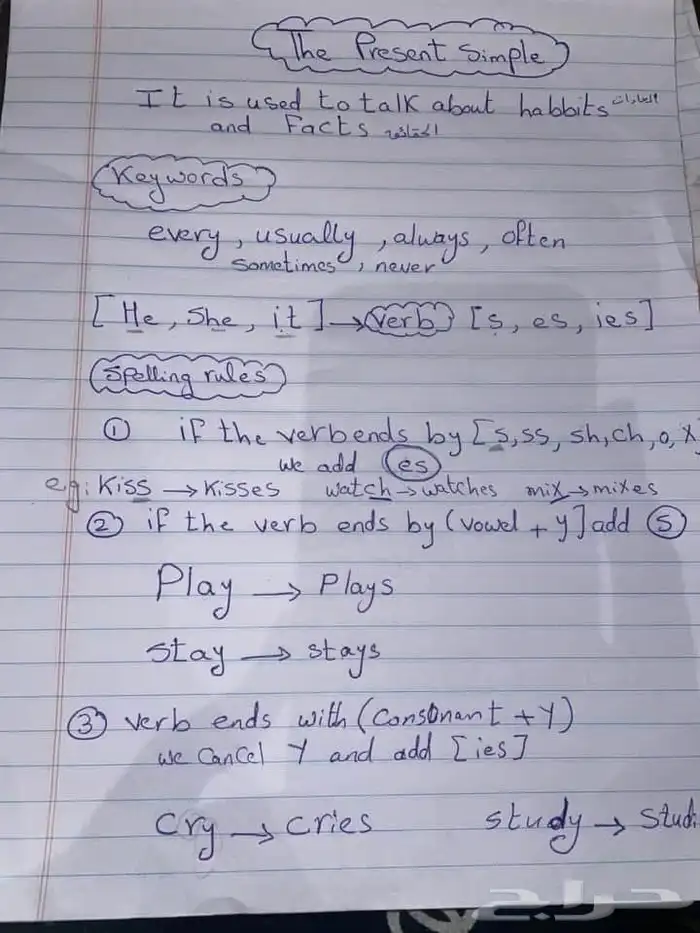 The Present Simple
It is used to talk about habbits العادات
and Facts الحقائق
Keywords
every, usually, always, often
sometimes, never
[He, She, it] → verb [s, es, ies]
Spelling rules
① if the verb ends by [s, ss, sh, ch, o, x
we add es
e.g: Kiss → Kisses watch → watches mix → mixes
② if the verb ends by (vowel + y] add s
Play → Plays
stay → stays
③ verb ends with (Consonant + Y)
we cancel Y and add [ies]
Cry → cries study → studi
حراج